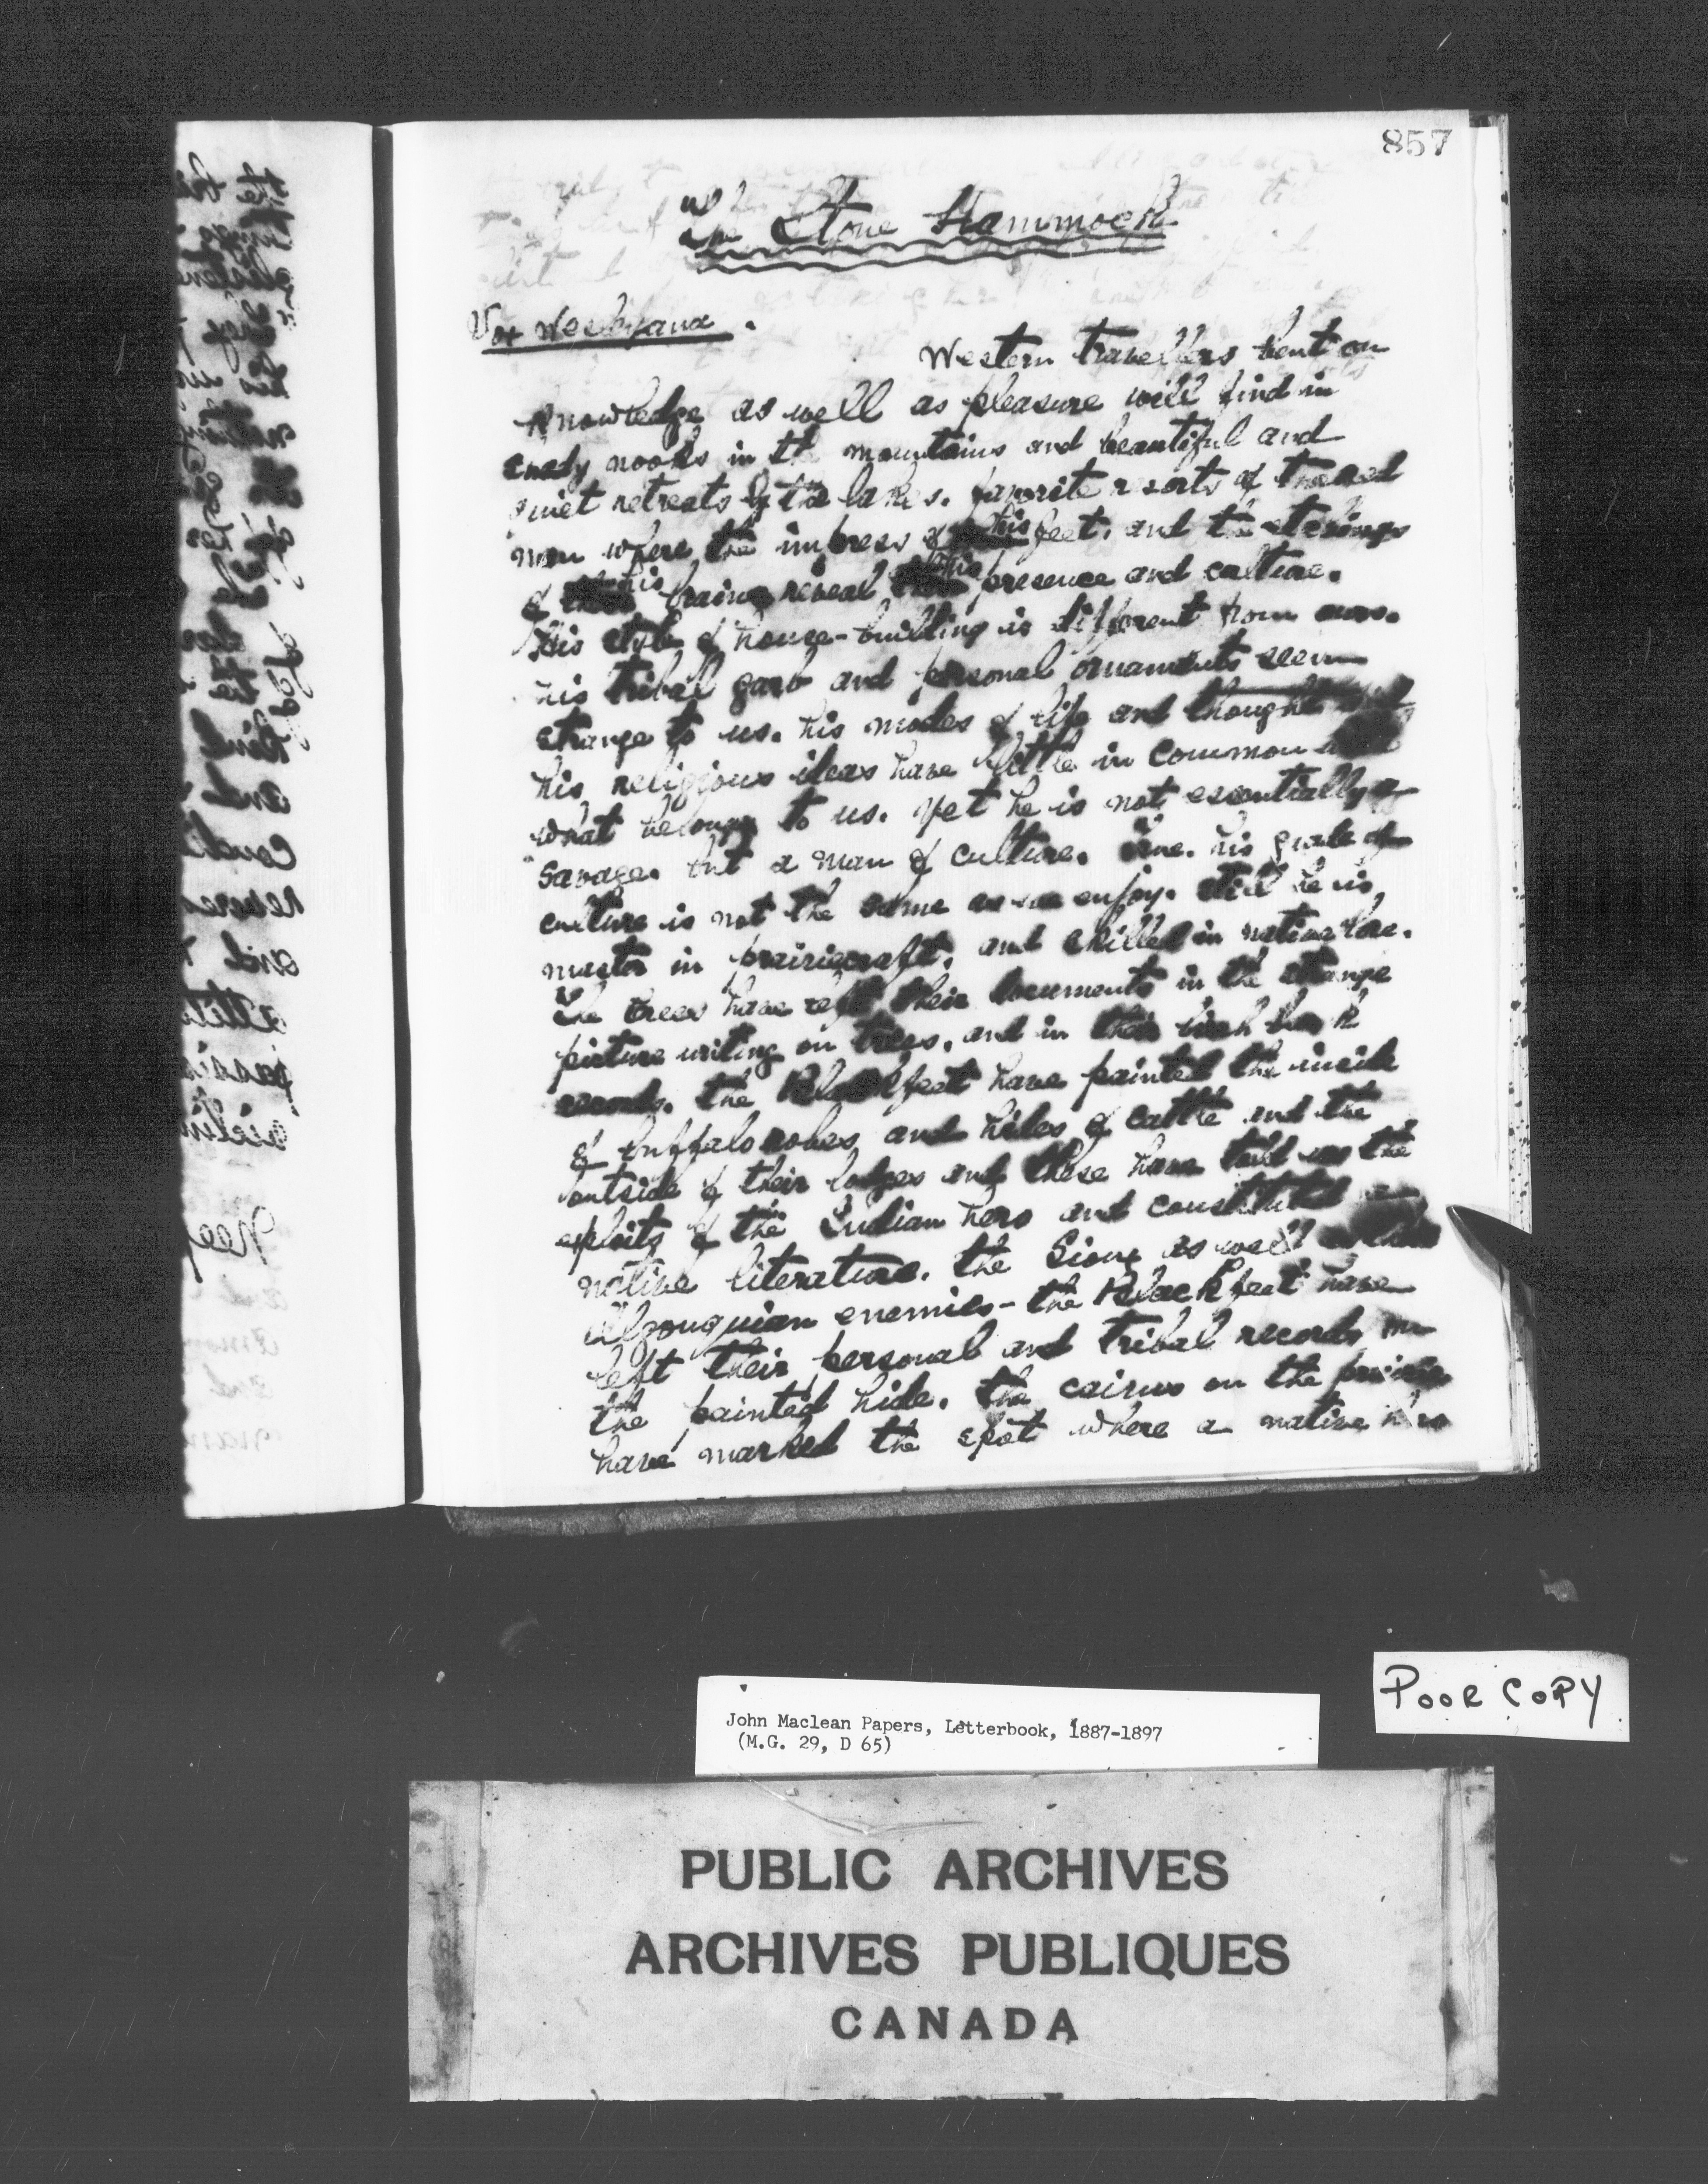 857
The Stone Hammock
Vox Wesleyana.
Western travellers bent on
knowledge as well as pleasure will find in
shady nooks in the mountains and beautiful and
quiet retreats by the lakes, favorite resorts of the red
man where the impress of his feet, and the etchings
of his brain reveal his presence and culture.
His style of house-building is different from ours.
his tribal garb and personal ornaments seem
strange to us. his modes of life and thought
his religious ideas have little in common
what belongs to us. yet he is not essentially a
savage. but a man of culture. True. his grade of
culture is not the same as we enjoy. still he is
master in prairiecraft, and skilled in native lore.
The Crees have left their documents in the strange
picture writing on trees, and in their birch bark
records. the Blackfeet have painted the inside
of buffalo robes and hides of cattle and the
outside of their lodges and these have told us the
exploits of the Indian hero and constituted
native literature. the Sioux as well
Algonquian enemies - the Blackfeet have
left their personal and tribal records on
the painted hide. the cairns on the prairie
have marked the spot where a native hero
POOR COPY
John Maclean Papers, Letterbook, 1887-1897
(M.G. 29, D 65)
PUBLIC ARCHIVES
ARCHIVES PUBLIQUES
CANADA